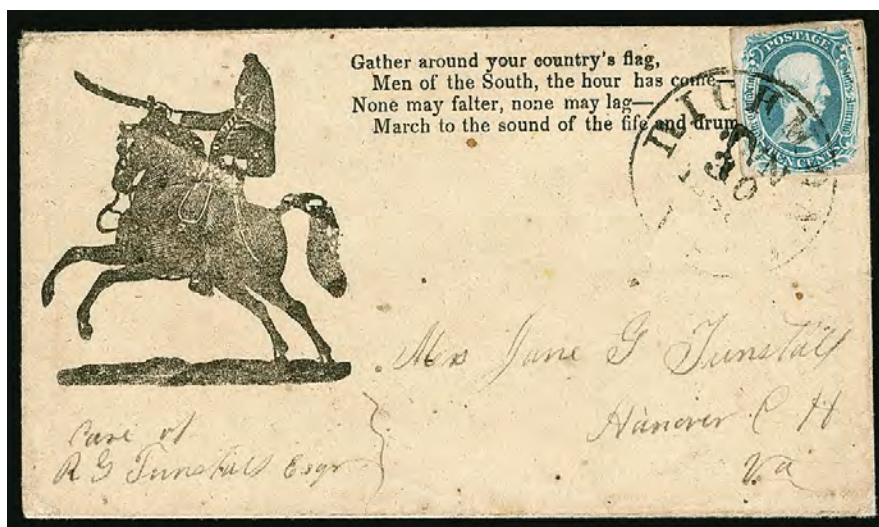 Gather around your country's flag,
Men of the South, the hour has come—
None may falter, none may lag—
March to the sound of the fife and drum
POSTAGE
TEN CENTS
RICHMOND
30
Mrs Jane G Tunstall
Hanover C H
Va
Care of
R G Tunstall Esqr